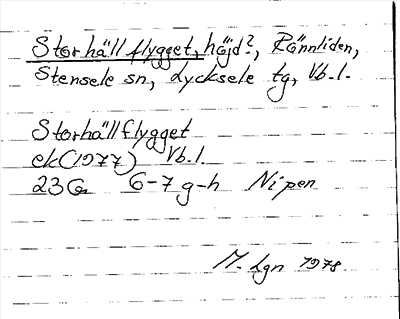 Storhällflygget, höjd?, Rönnliden,
Stensele sn, Lycksele tg, Vb.l.
Storhällflygget
ek(1977) Vb.l.
23G 6-7 g-h Nipen
M. Lgn 1978